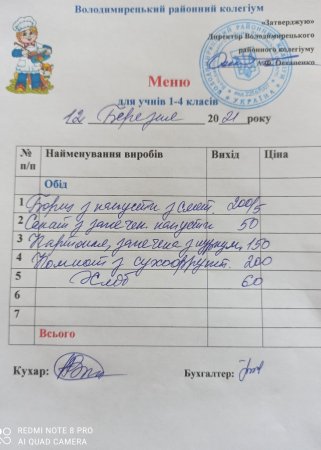 Володимирецький районний колегіум
«Затверджую»
Директор Володимирецького
районного колегіуму
Меню
для учнів 1-4 класів
12 Березня 2021 року
№ п/п Найменування виробів Вихід Ціна
Обід
1 Борщ з капусти з смет. 200/5
2 Салат з запечен. капусти 50
3 Картопля, запечена з 150
4 Компот з сухофрукт. 200
5 Хліб 60
6
7
Всього
Кухар:
Бухгалтер:
УКРАЇНА
REDMI NOTE 8 PRO
AI QUAD CAMERA